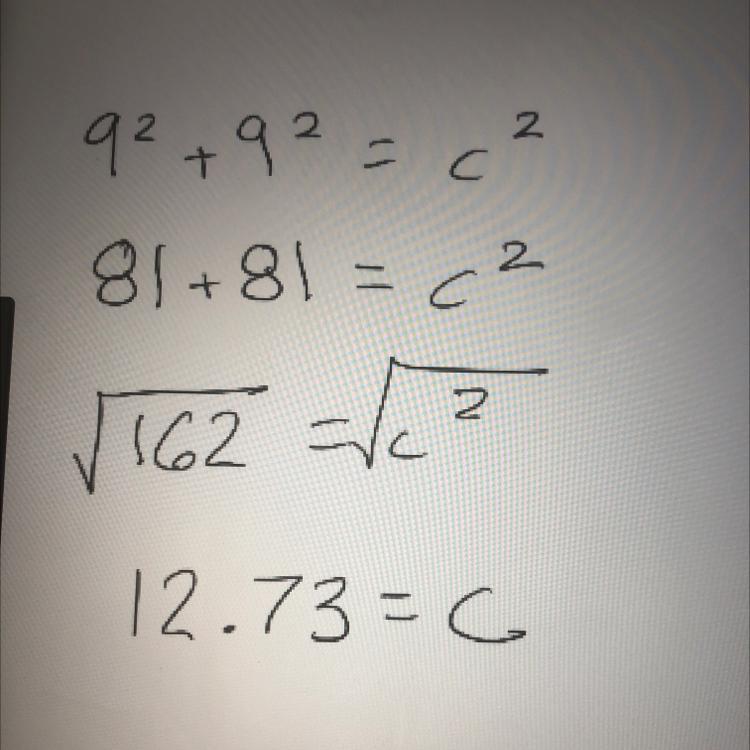 9² + 9² = c²
81 + 81 = c²
√162 = √c²
12.73 = c